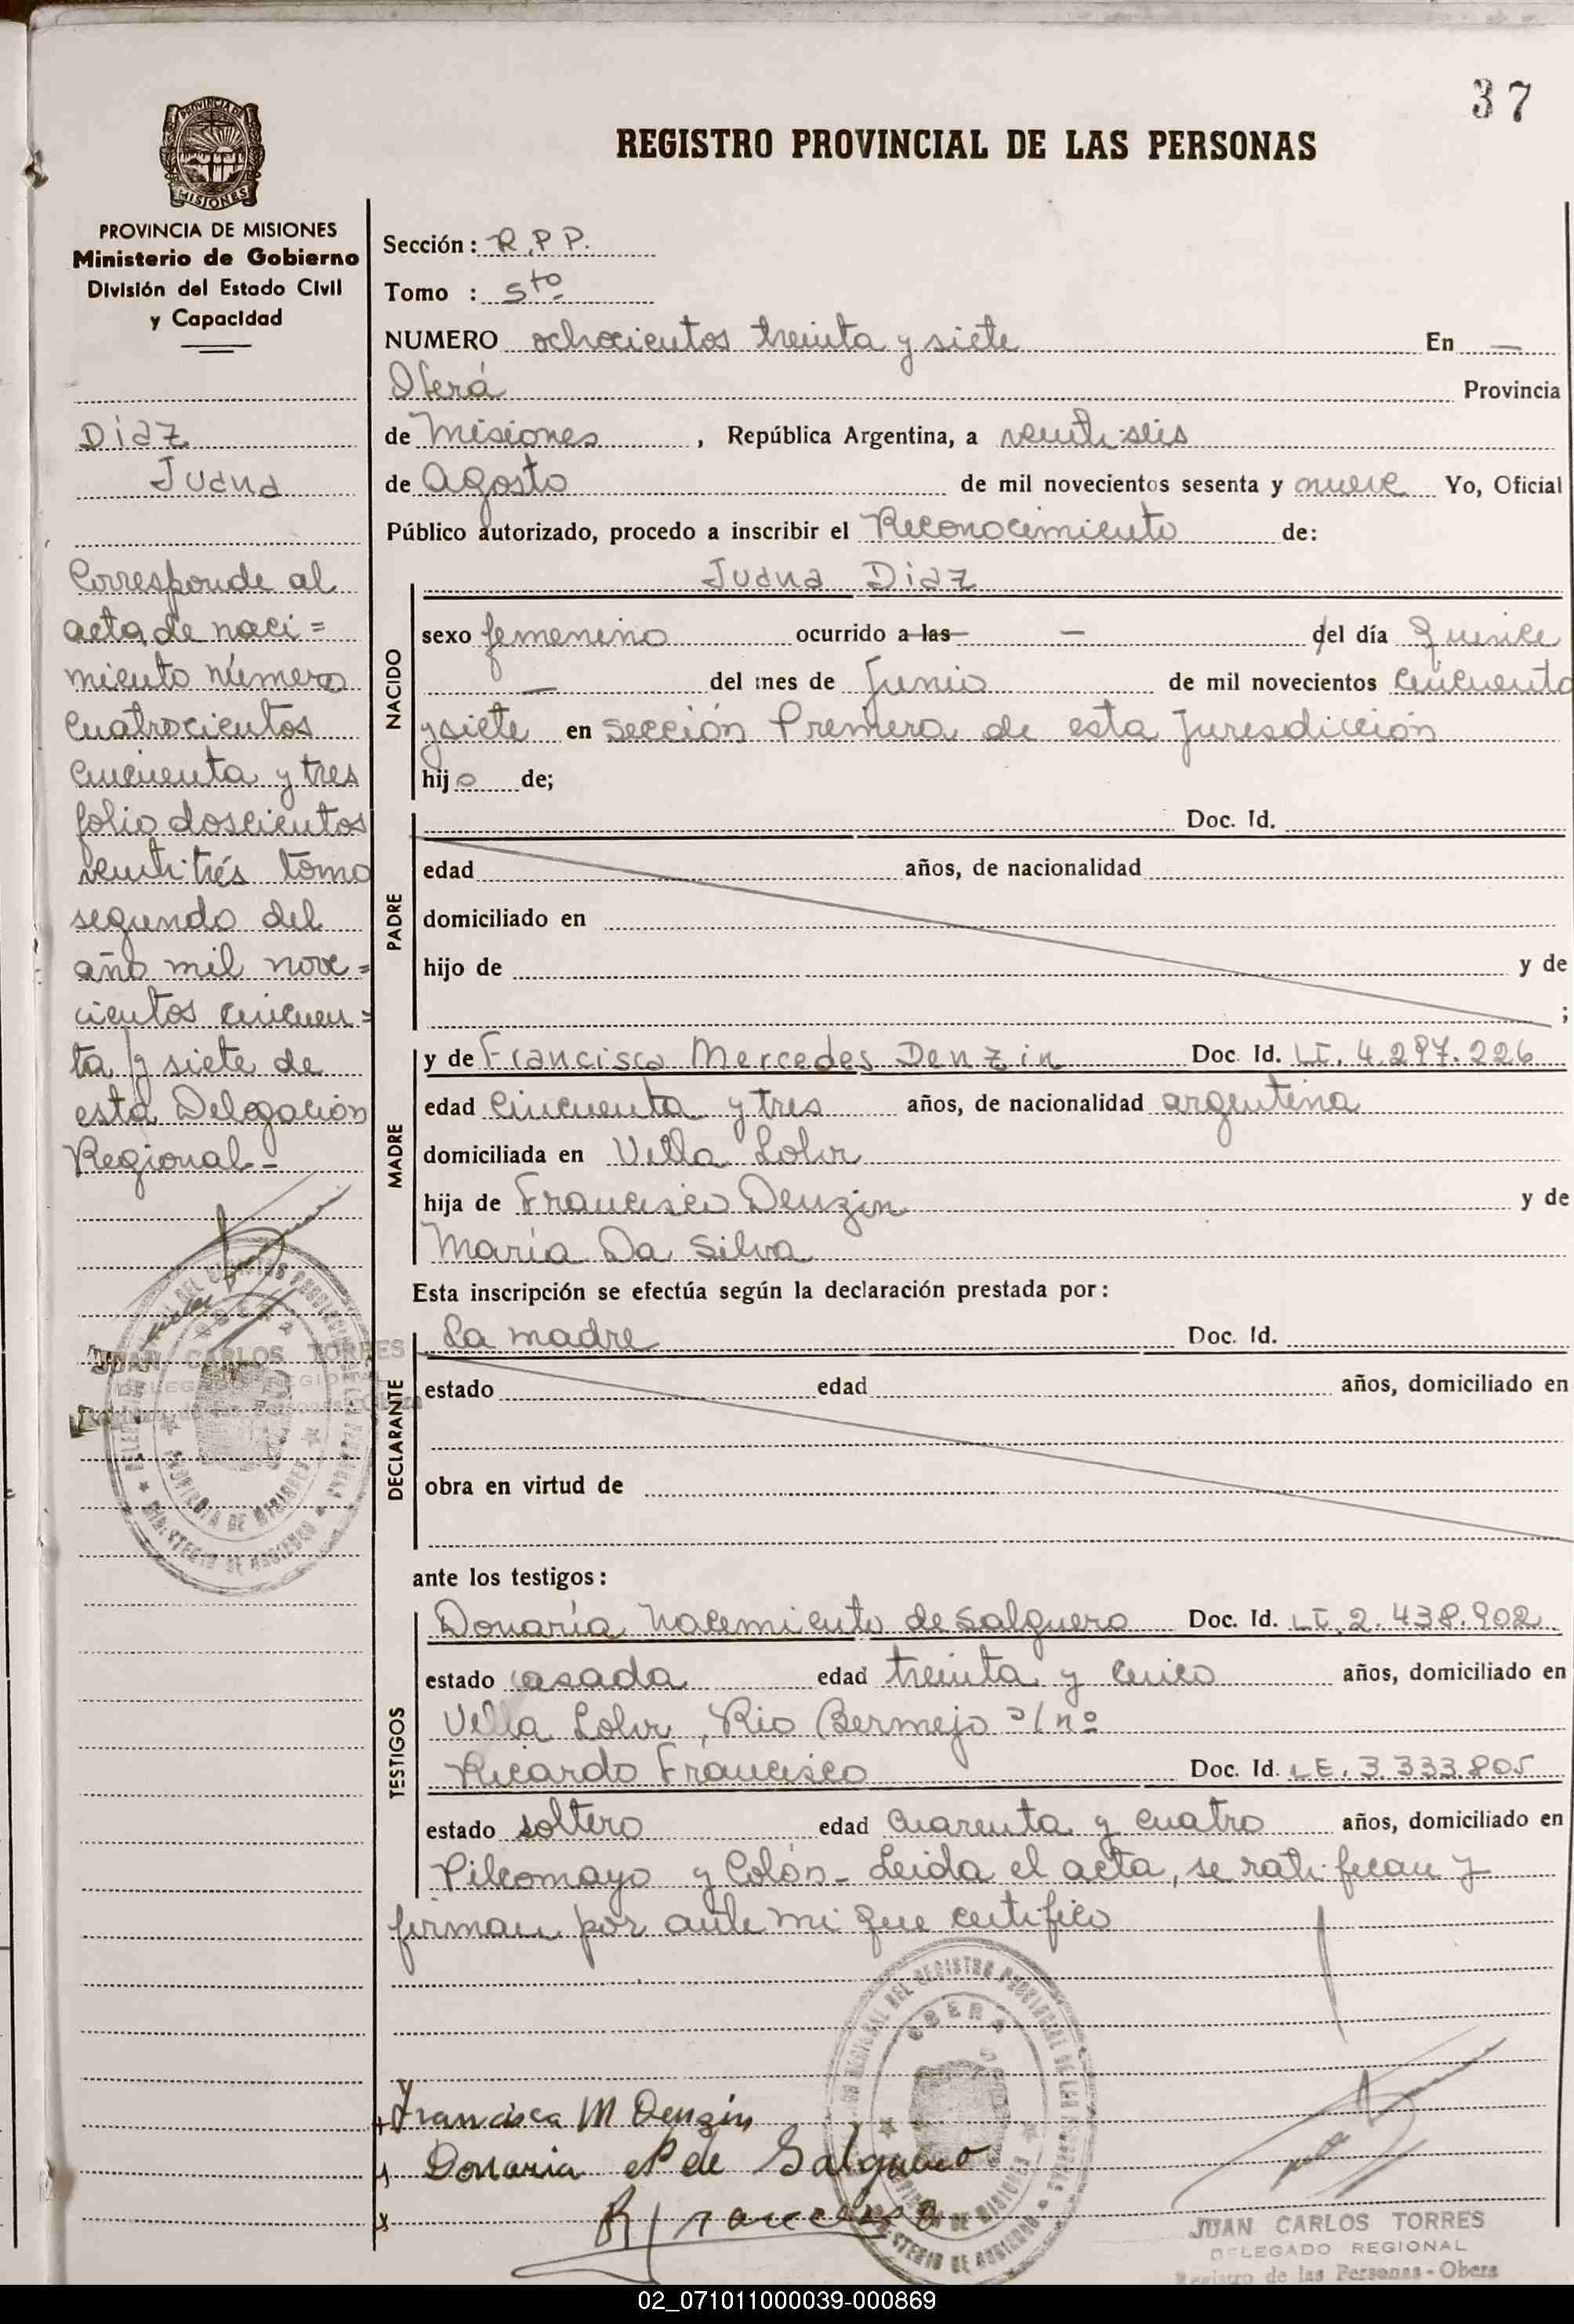 37
REGISTRO PROVINCIAL DE LAS PERSONAS
PROVINCIA DE MISIONES
Ministerio de Gobierno
División del Estado Civil
y Capacidad
Diaz
Juana
Corresponde al
acta de naci=
miento número
cuatrocientos
cincuenta y tres
folio doscientos
veintitrés tomo
segundo del
año mil nove=
cientos cincuen=
ta y siete de
esta Delegación
Regional-
JUAN CARLOS TORRES
DELEGADO REGIONAL
Sección: R.P.P.
Tomo : 5to
NUMERO ochocientos treinta y siete En —
Oberá Provincia
de Misiones, República Argentina, a veintiseis
de Agosto de mil novecientos sesenta y nueve Yo, Oficial
Público autorizado, procedo a inscribir el Reconocimiento de:
NACIDO
Juana Diaz
sexo femenino ocurrido a las — del día quince
— del mes de Junio de mil novecientos cincuenta
y siete en Sección Primera de esta Jurisdicción
hijo de;
PADRE
Doc. Id.
edad años, de nacionalidad
domiciliado en
hijo de y de
;
MADRE
y de Francisca Mercedes Denzin Doc. Id. LI. 4.297.226
edad cincuenta y tres años, de nacionalidad argentina
domiciliada en Villa Lohr
hija de Francisco Denzin y de
María Da Silva
Esta inscripción se efectúa según la declaración prestada por:
DECLARANTE
La madre Doc. Id.
estado edad años, domiciliado en
obra en virtud de
ante los testigos:
TESTIGOS
Donaría Nacimiento de Salguero Doc. Id. LI. 2.438.902
estado casada edad treinta y cinco años, domiciliado en
Villa Lohr, Rio Bermejo s/nº
Ricardo Francisco Doc. Id. LE. 3.333.805
estado soltero edad cuarenta y cuatro años, domiciliado en
Pilcomayo y Colón- Leida el acta, se ratifican y
firman por ante mi que certifico
Francisca M Denzin
Donaria N de Salguero
R Francisco
OBERA
JUAN CARLOS TORRES
DELEGADO REGIONAL
Registro de las Personas - Obera
02_071011000039-000869